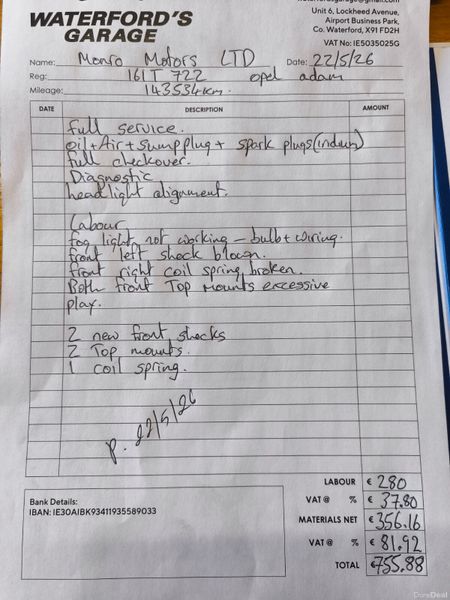 waterfordsgarage@gmail.com
WATERFORD'S
GARAGE
Unit 6, Lockheed Avenue,
Airport Business Park,
Co. Waterford, X91 FD2H
VAT No: IE5035025G
Name: Monro Motors LTD Date: 22/5/26
Reg: 161T 722 opel adam
Mileage: 143534km.
DATE DESCRIPTION AMOUNT
full service.
oil+Air+sump plug+ spark plugs
full checkover.
Diagnostic
headlight alignment.
Labour
fog light not working - bulb+ wiring.
front left shock blown.
front right coil spring broken.
Both front Top mounts excessive
play.
2 new front shocks
2 Top mounts.
1 coil spring.
P. 22/5/26
LABOUR € 280
VAT @ % € 37.80
MATERIALS NET € 356.16
VAT @ % € 81.92
TOTAL €755.88
Bank Details:
IBAN: IE30AIBK93411935589033
DoneDeal